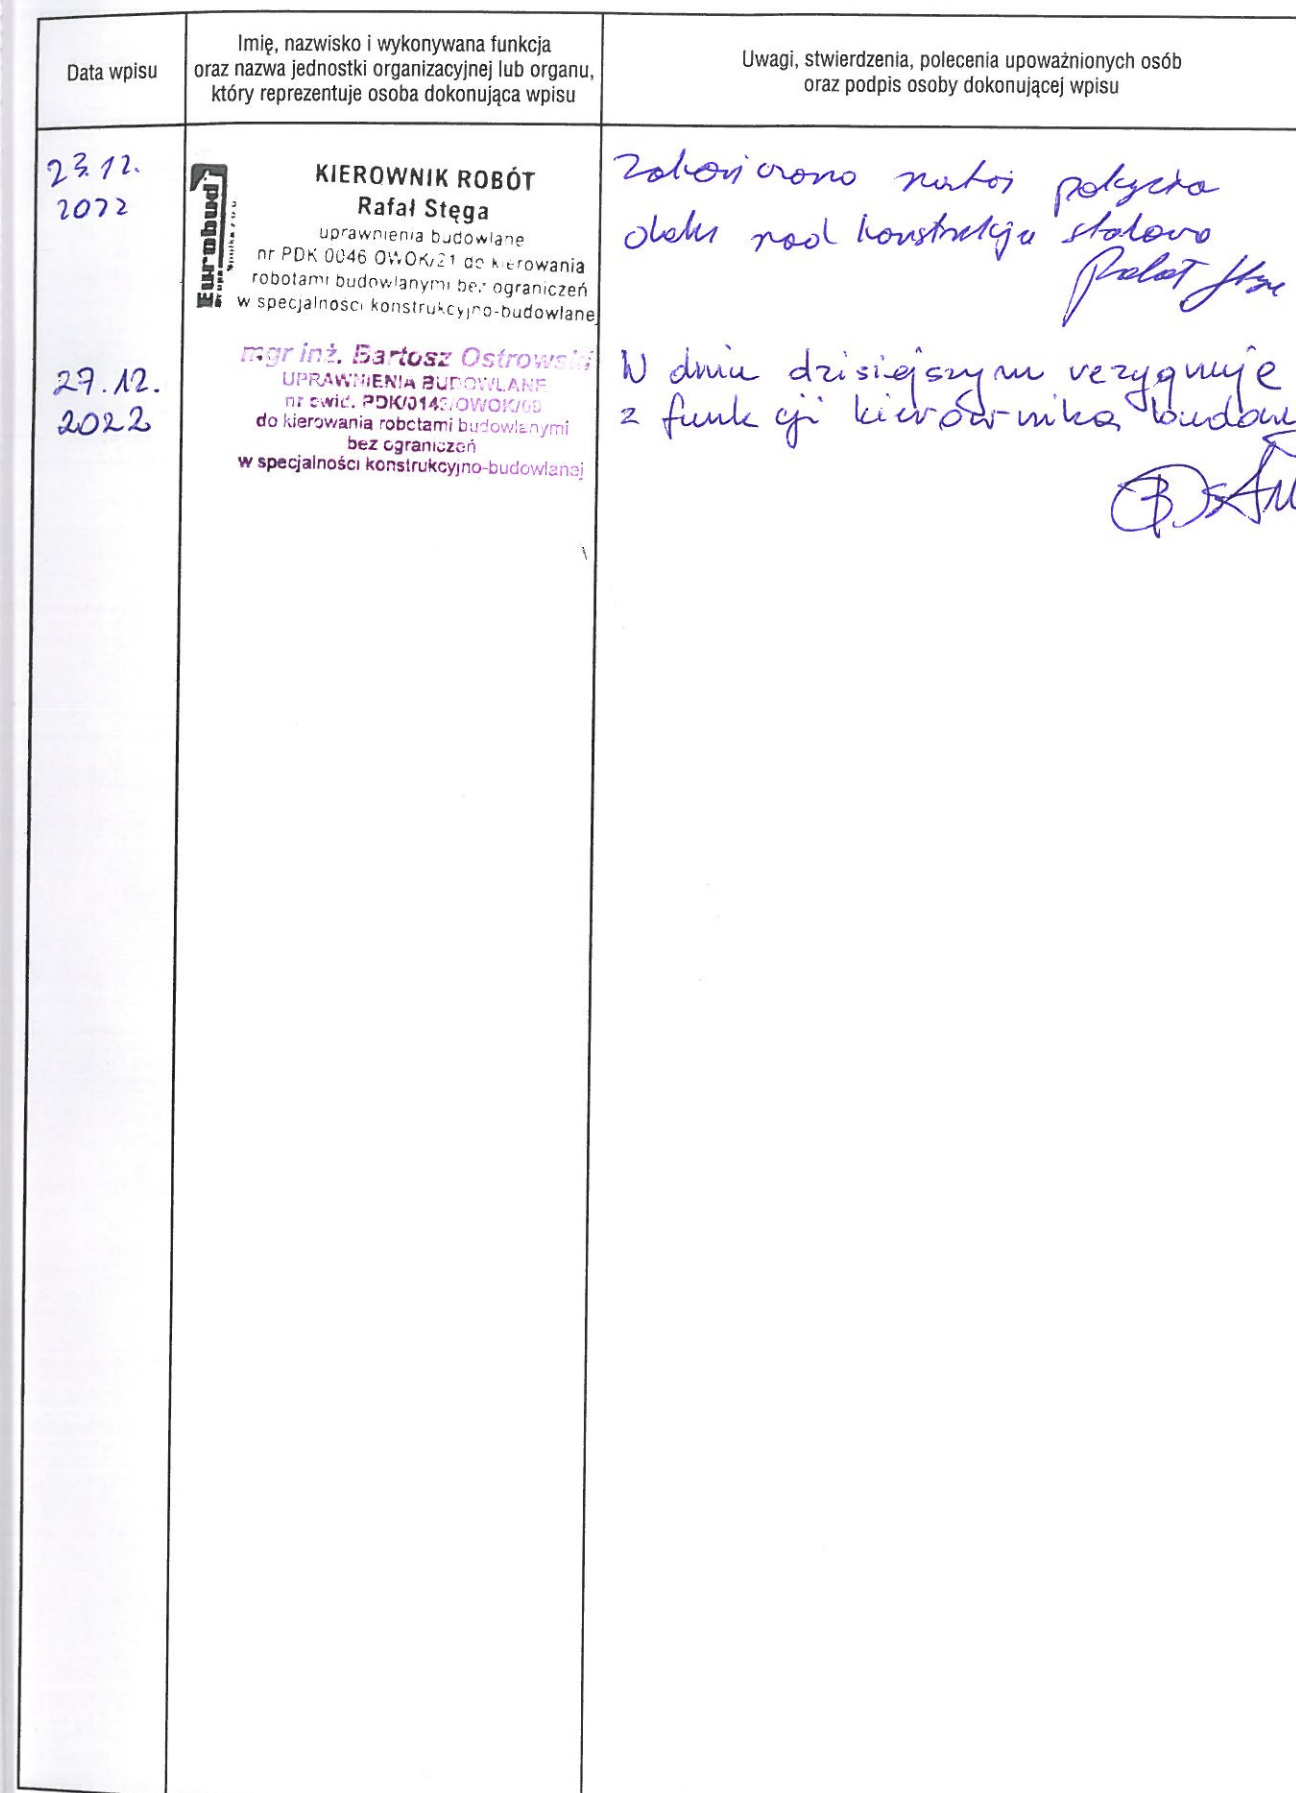 Data wpisu
Imię, nazwisko i wykonywana funkcja
oraz nazwa jednostki organizacyjnej lub organu,
który reprezentuje osoba dokonująca wpisu
Uwagi, stwierdzenia, polecenia upoważnionych osób
oraz podpis osoby dokonującej wpisu
23.12.
2022
Eurobud
KIEROWNIK ROBÓT
Rafał Stęga
uprawnienia budowlane
nr PDK 0046 OWOK/21 do kierowania
robotami budowlanymi bez ograniczeń
w specjalności konstrukcyjno-budowlanej
Zakończono pokrycia
dachu nad konstrukcją stalową
27.12.
2022
mgr inż. Bartosz Ostrowski
UPRAWNIENIA BUDOWLANE
nr ewid.
do kierowania robotami budowlanymi
bez ograniczeń
w specjalności konstrukcyjno-budowlanej
W dniu dzisiejszym rezygnuję
z funkcji kierownika budow